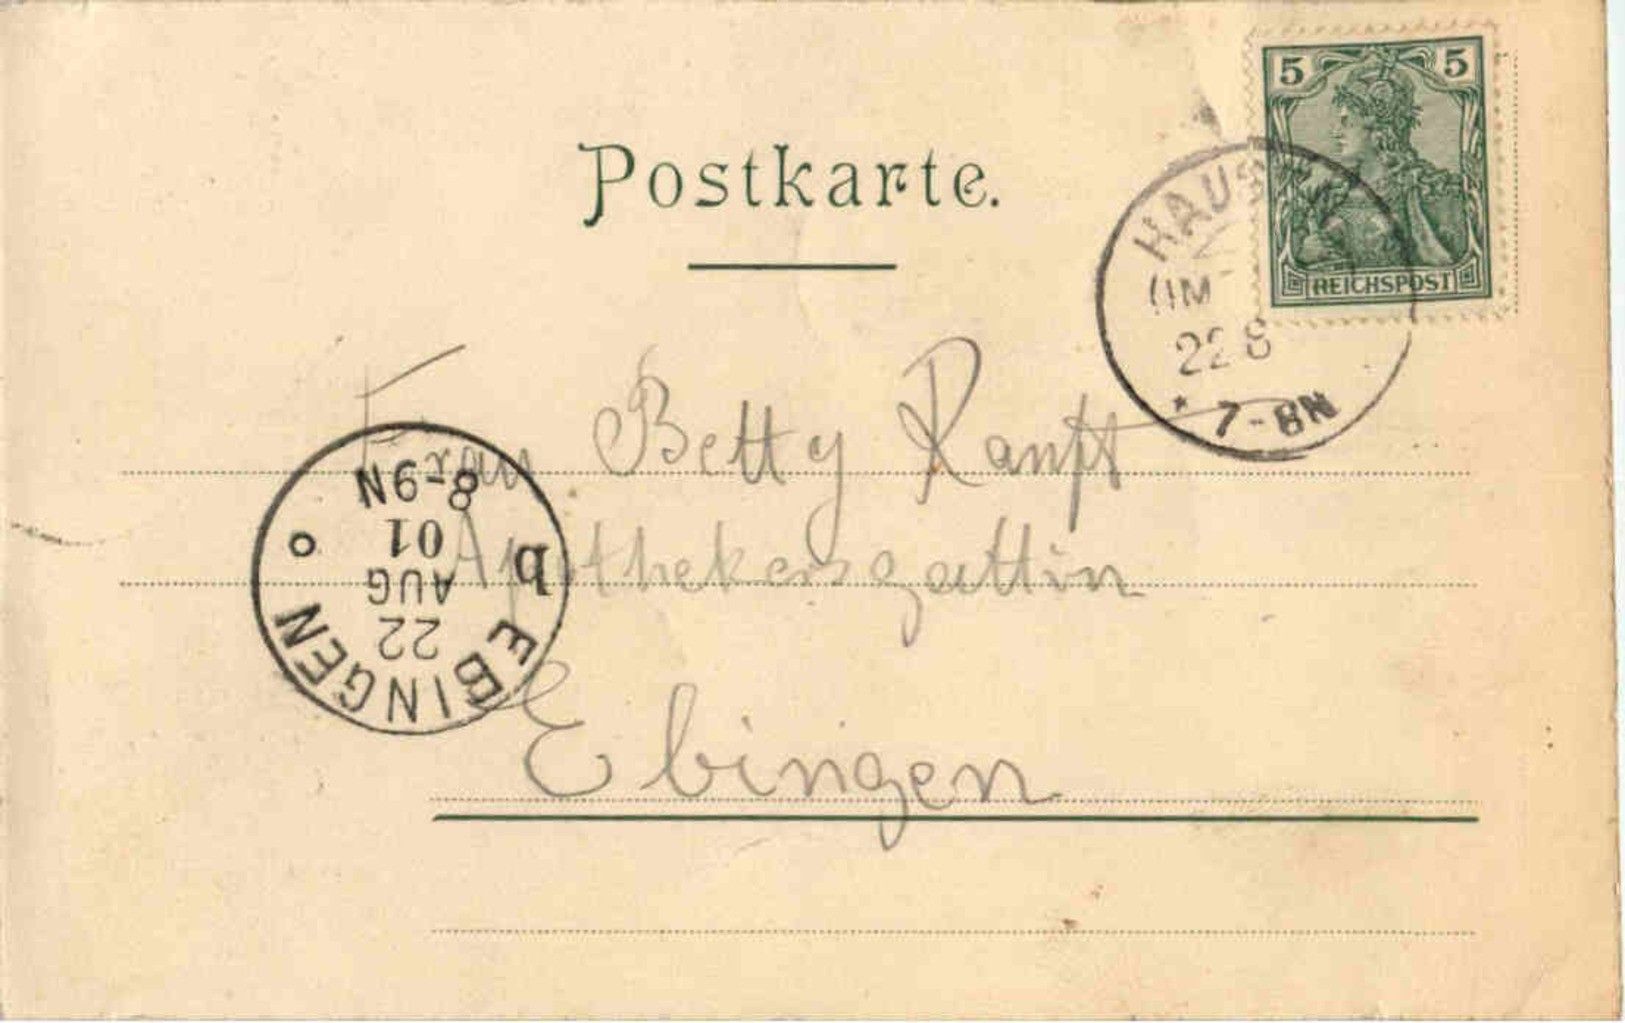 5 5
REICHSPOST
Postkarte.
(IM
22 8
* 7-8N
Frau Betty Ranft
Apothekersgattin
Ebingen
EBINGEN b
22
AUG
01
8-9N